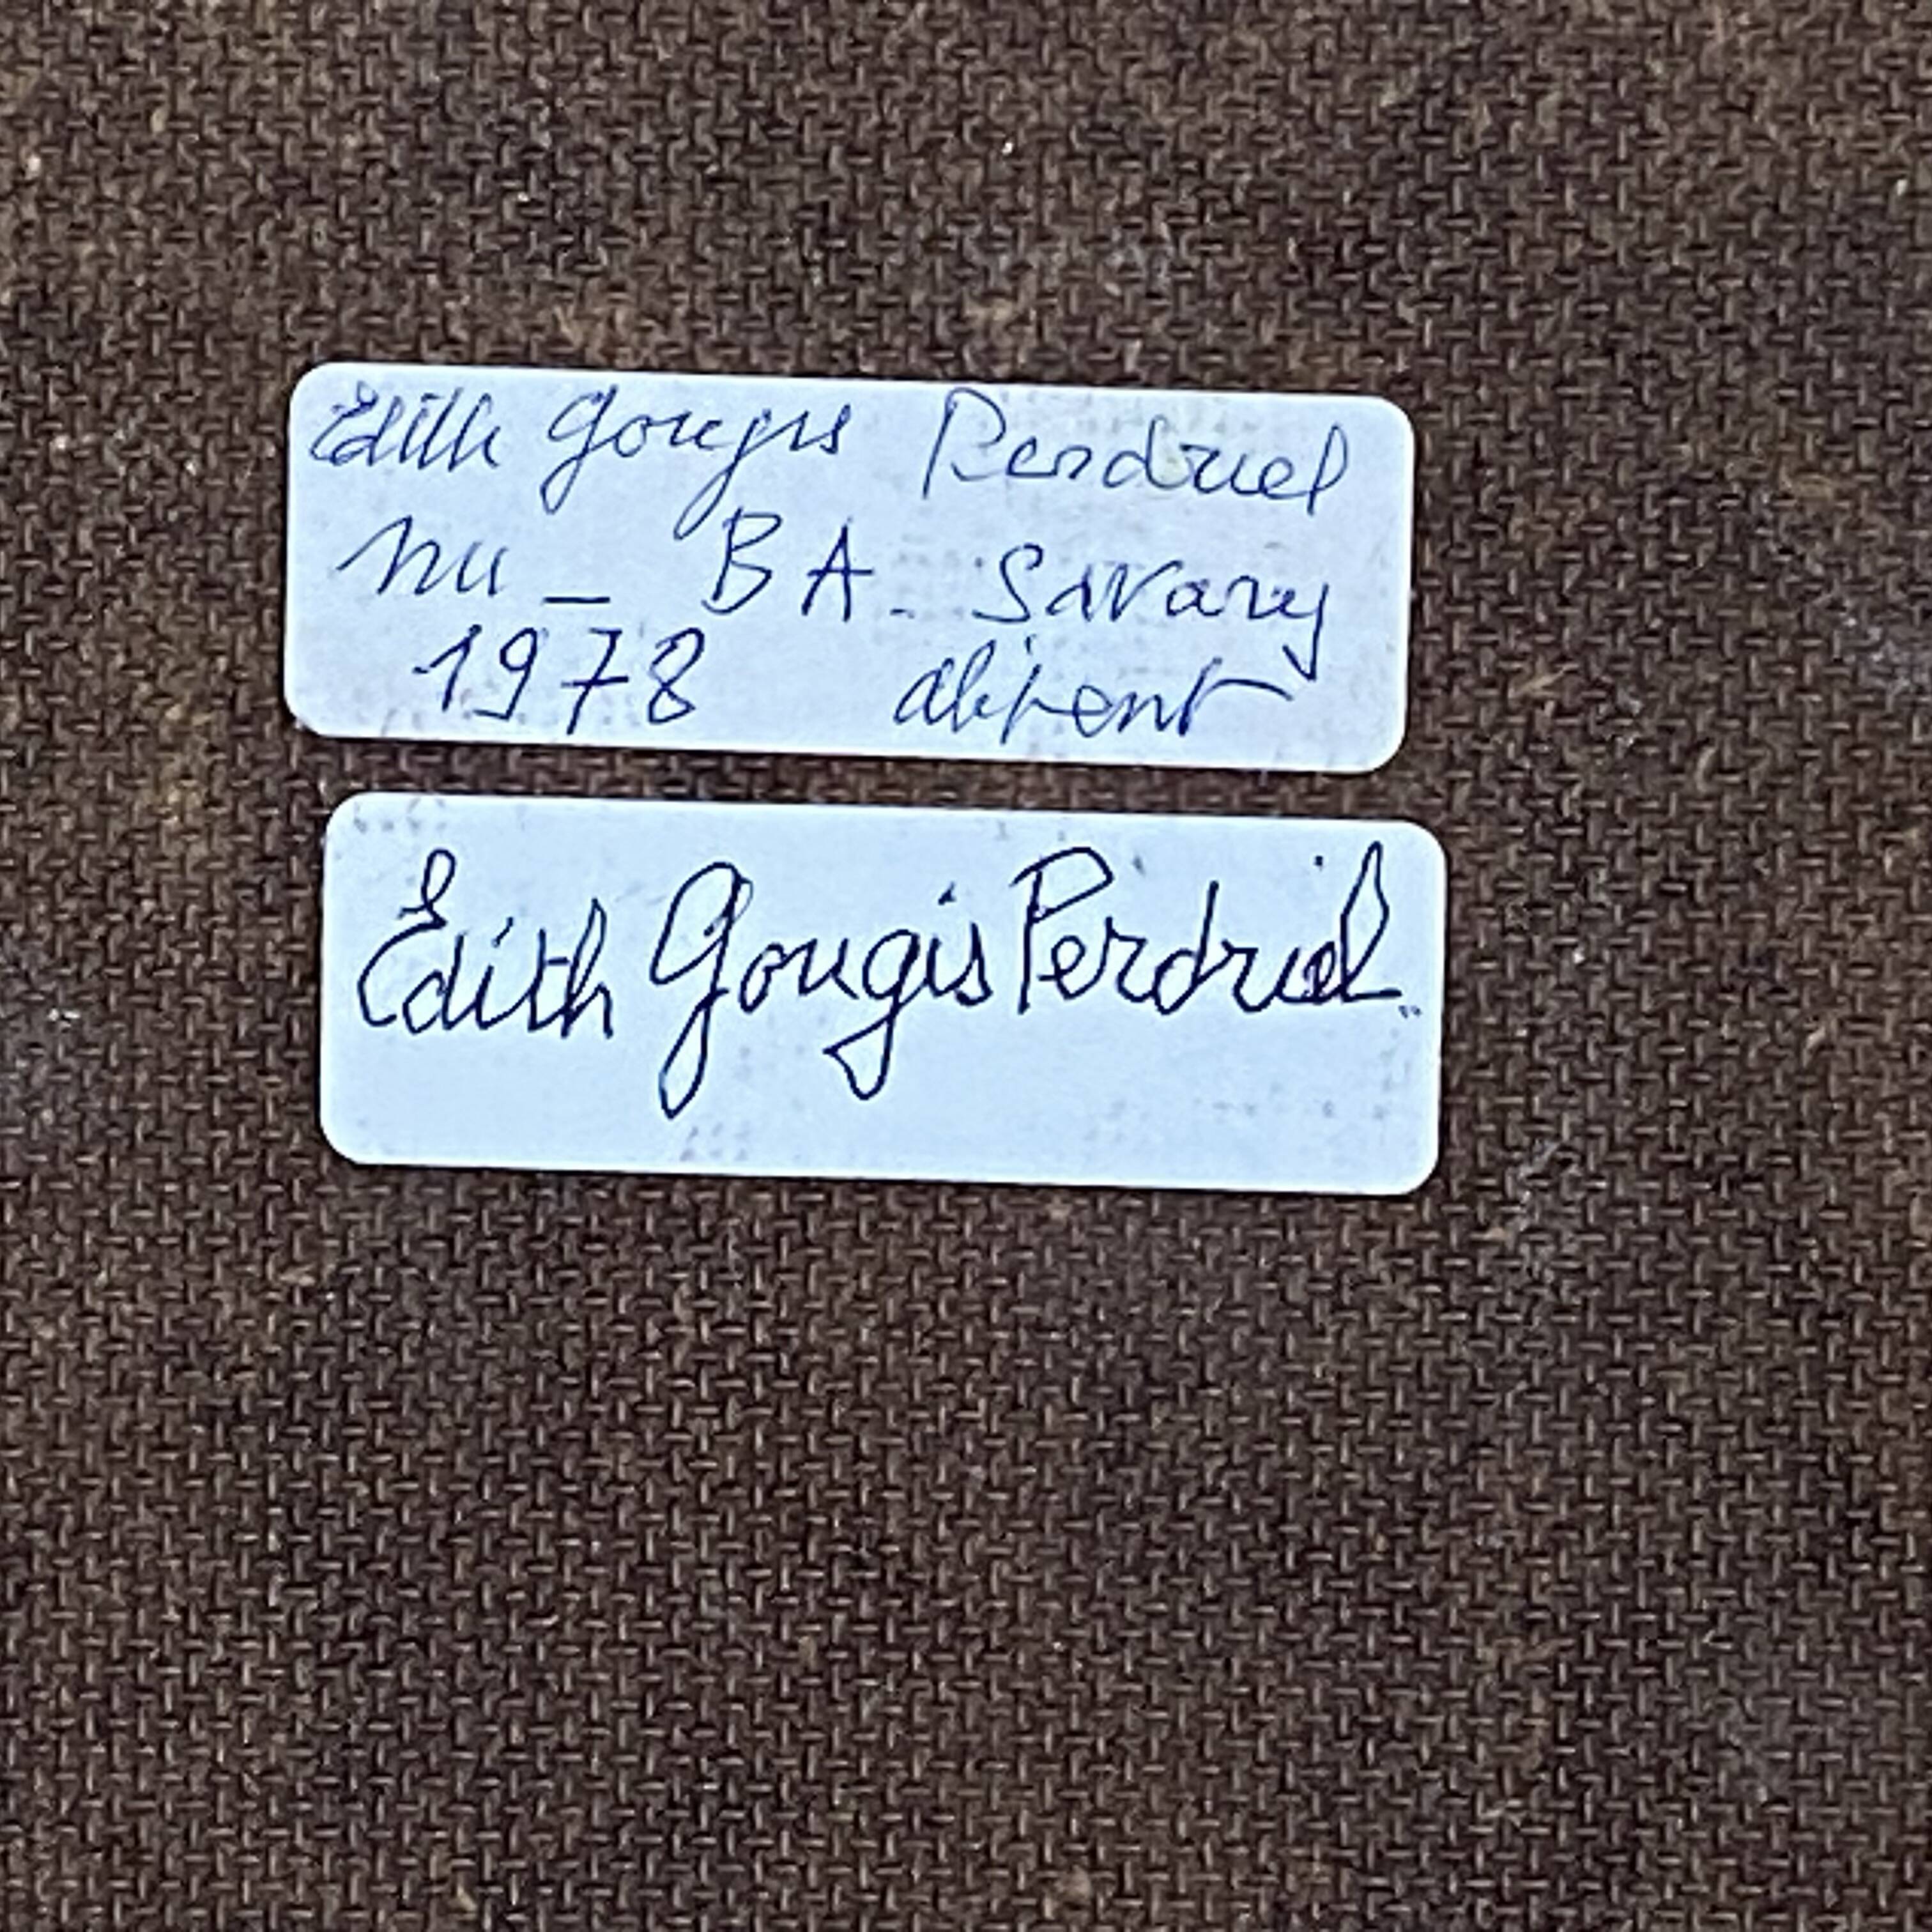 Edith Gougis Perdriel
nu _ BA. Savary
1978
Edith Gougis Perdriel